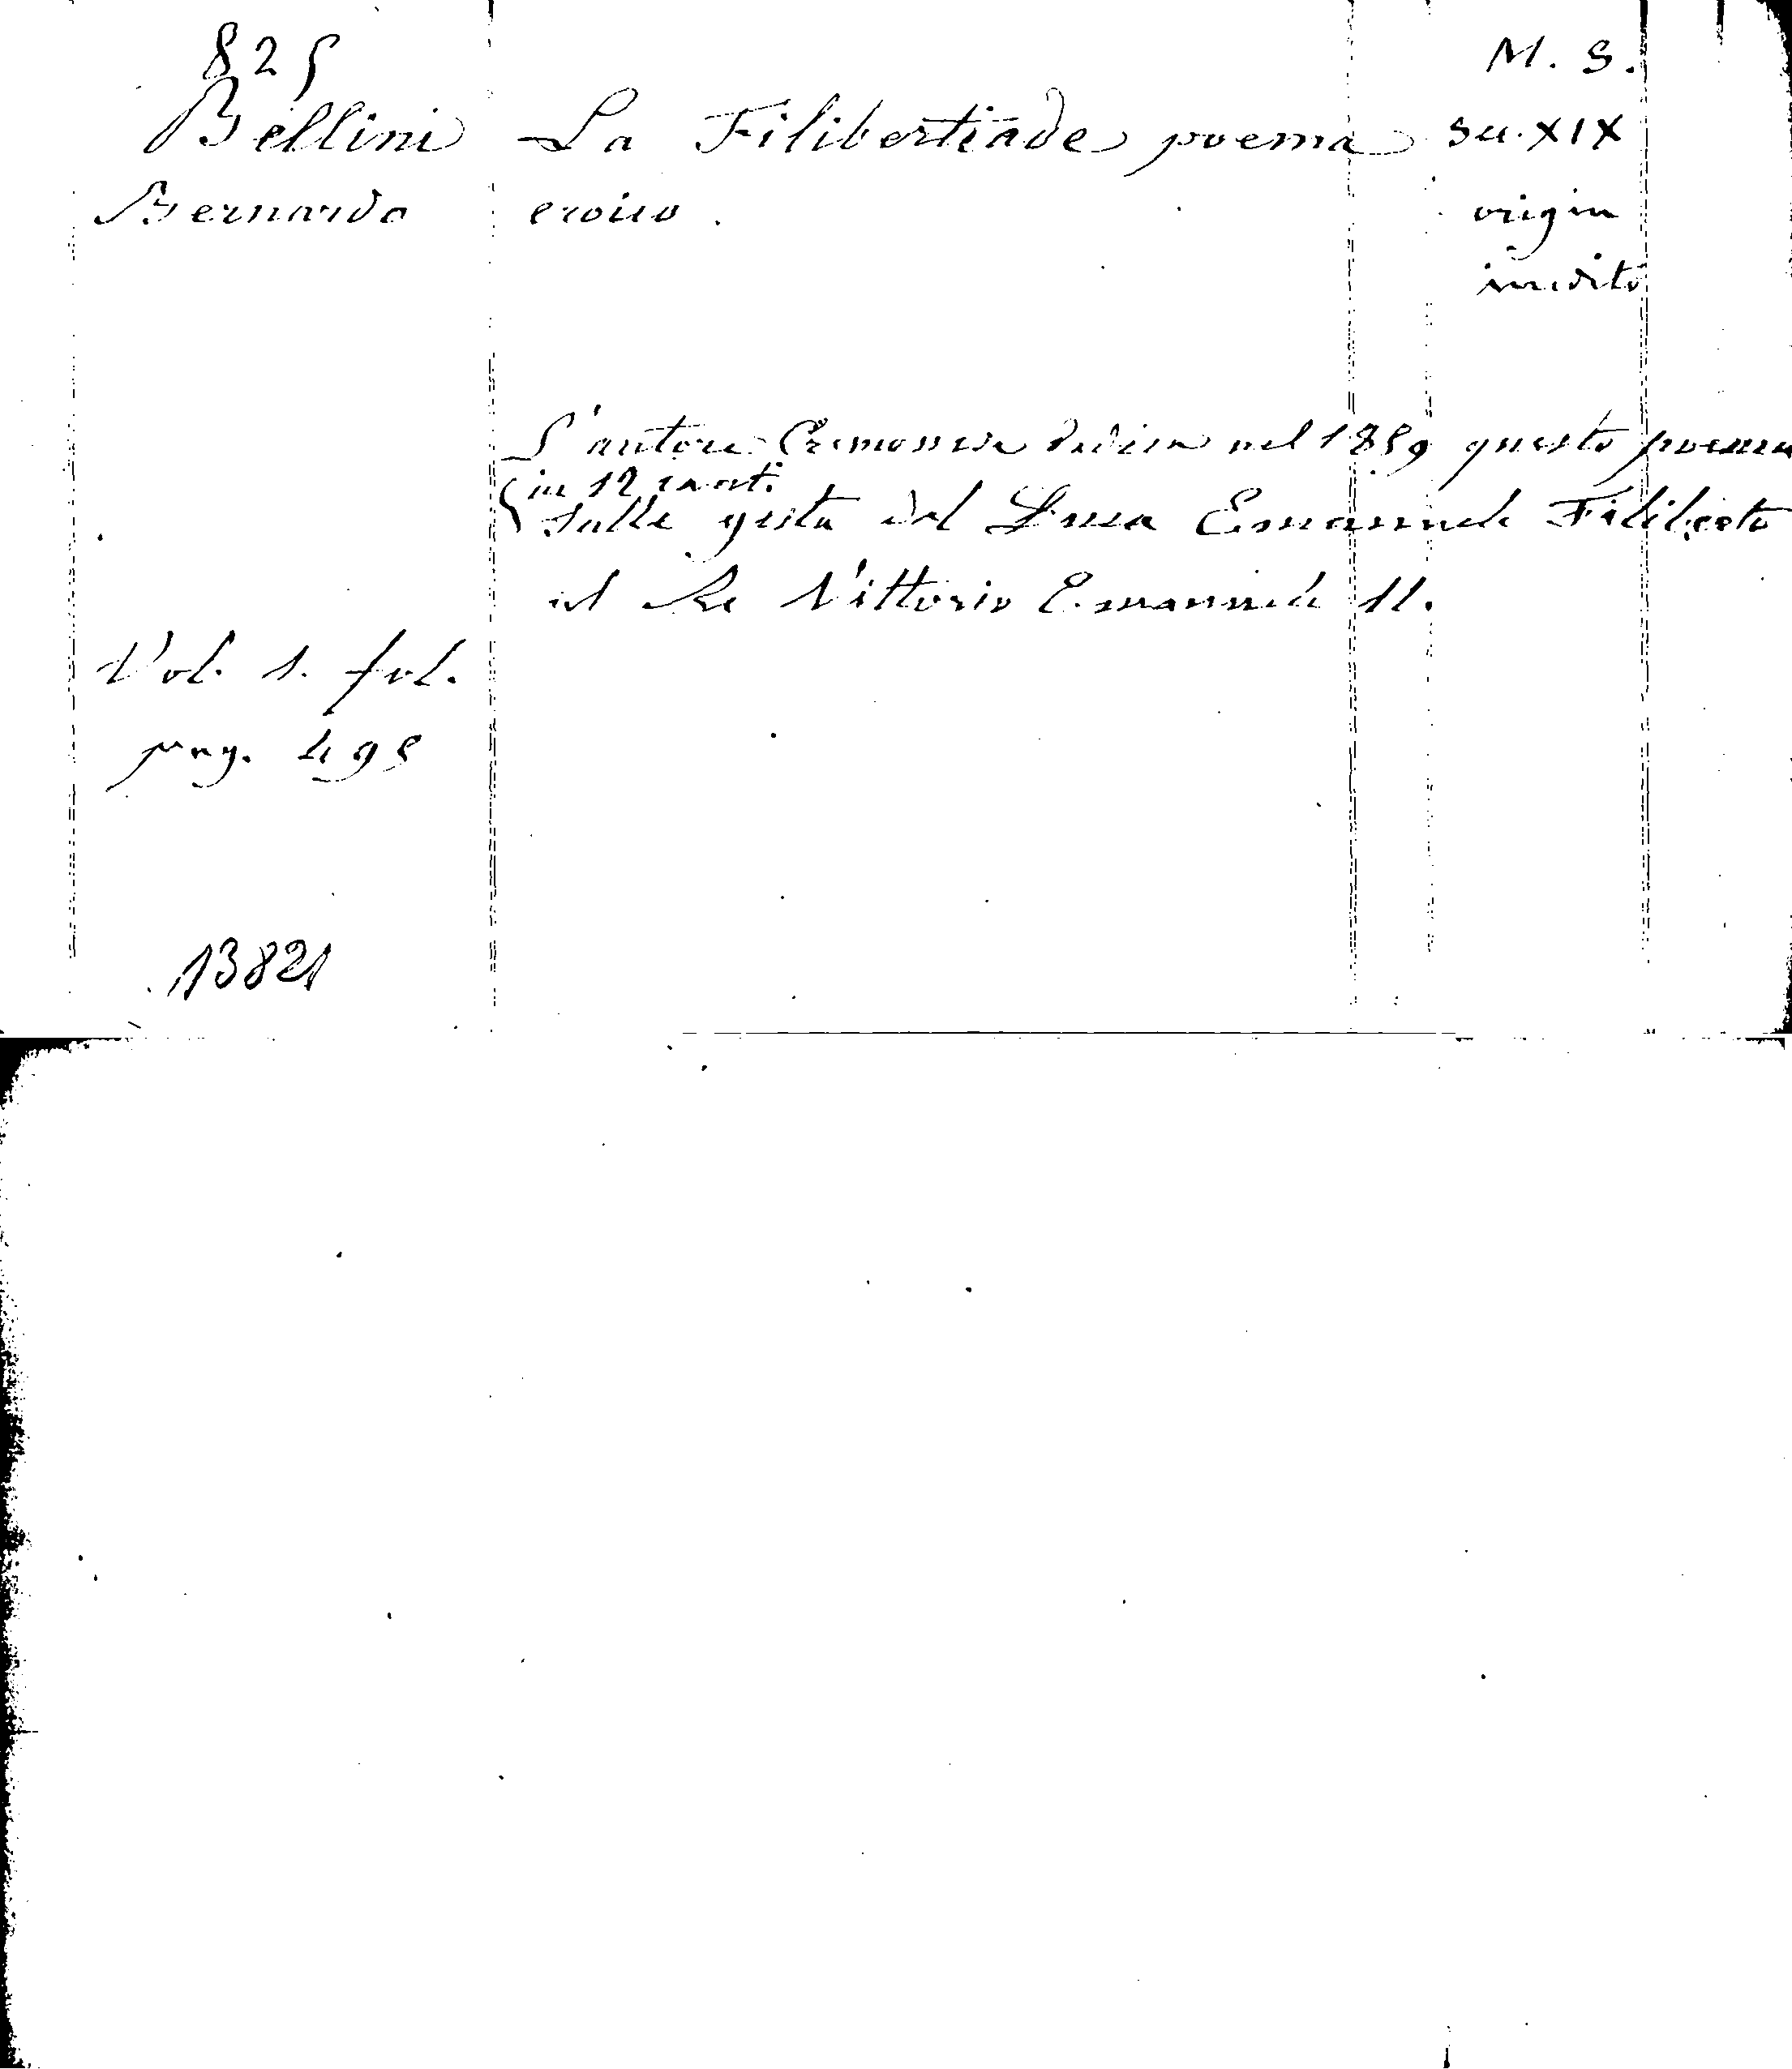 825
M. S.
Bellini La Filibertiade poema sec. XIX
Bernardo eroico. origin
inedito
L'autore Cremonese dedica nel 1859 questo poema
in 12 canti
sulle gesta del Duca Emanuele Filiberto
al Re Vittorio Emanuele II.
Vol. 1. fol.
pag. 495
13821